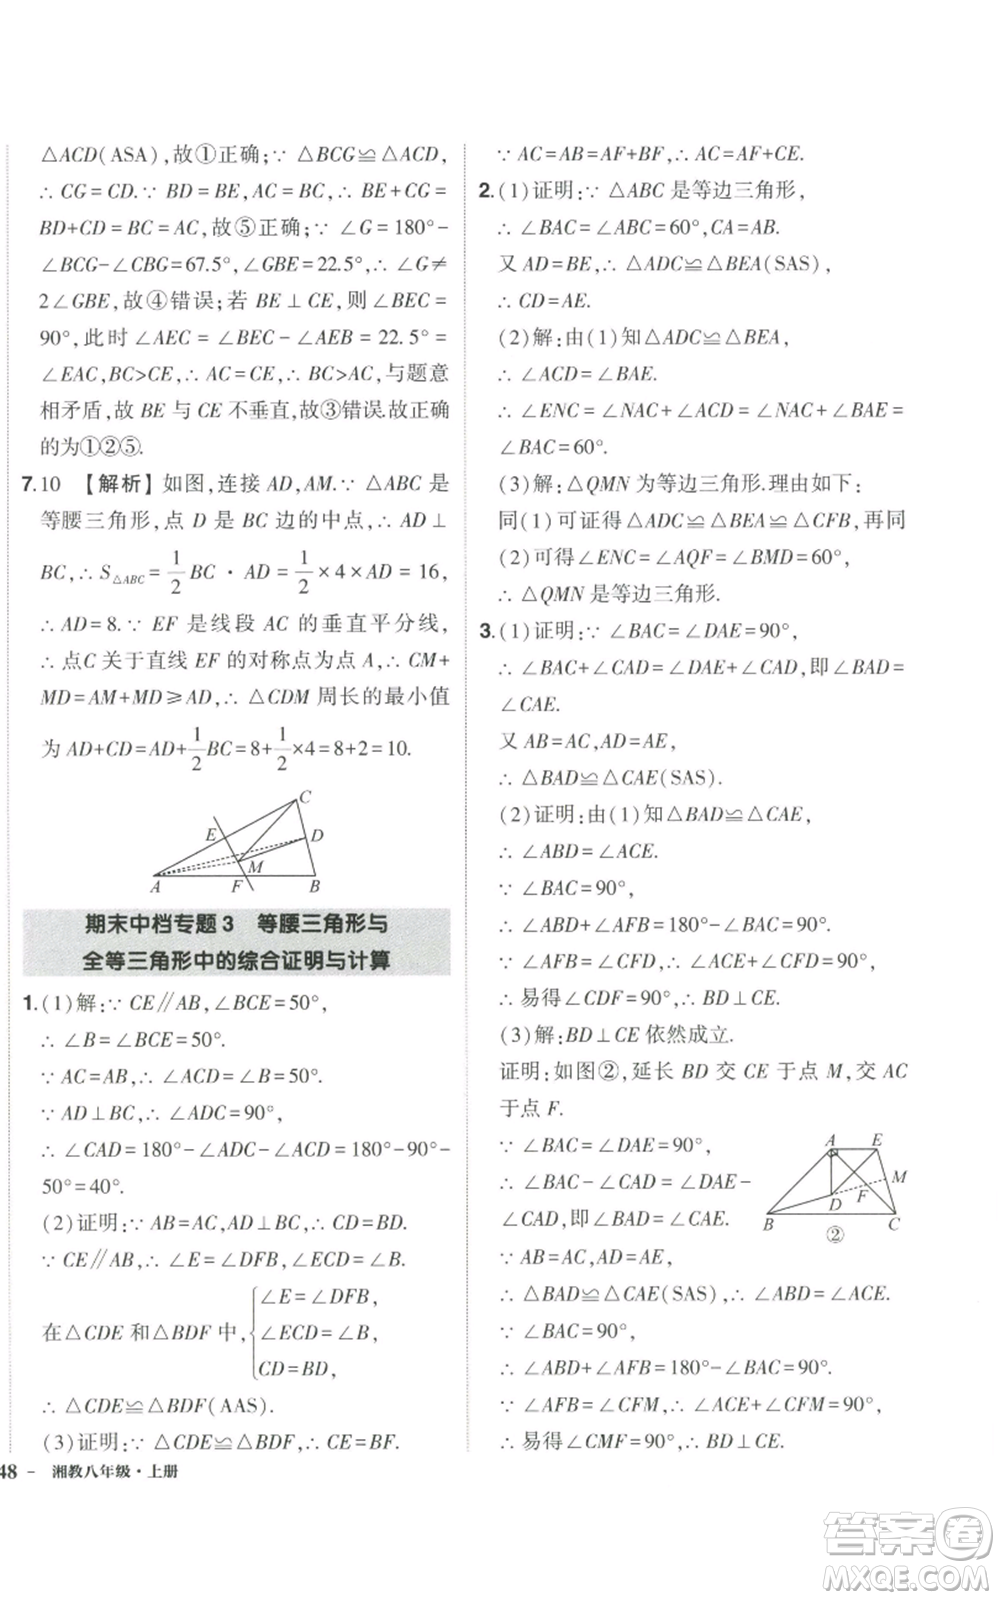 △ACD(ASA),故①正确;∵ △BCG≌△ACD,
∴ CG=CD.∵ BD=BE,AC=BC,∴ BE+CG=
BD+CD=BC=AC,故⑤正确;∵ ∠G=180°-
∠BCG-∠CBG=67.5°,∠GBE=22.5°,∴ ∠G≠
2∠GBE,故④错误;若 BE⊥CE,则∠BEC=
90°,此时∠AEC=∠BEC-∠AEB=22.5°=
∠EAC,BC>CE,∴ AC=CE,∴ BC>AC,与题意
相矛盾,故 BE 与 CE 不垂直,故③错误.故正确
的为①②⑤.
7.10 【解析】如图,连接 AD,AM.∵ △ABC 是
等腰三角形,点 D 是 BC 边的中点,∴ AD⊥
BC,∴ S△ABC=1/2 BC·AD=1/2×4×AD=16,
∴ AD=8.∵ EF 是线段 AC 的垂直平分线,
∴ 点C 关于直线 EF 的对称点为点 A,∴ CM+
MD=AM+MD≥AD,∴ △CDM 周长的最小值
为 AD+CD=AD+1/2 BC=8+1/2×4=8+2=10.
C
E
D
M
A
F
B
期末中档专题 3 等腰三角形与
全等三角形中的综合证明与计算
1.(1)解:∵ CE∥AB,∠BCE=50°,
∴ ∠B=∠BCE=50°.
∵ AC=AB,∴ ∠ACD=∠B=50°.
∵ AD⊥BC,∴ ∠ADC=90°,
∴ ∠CAD=180°-∠ADC-∠ACD=180°-90°-
50°=40°.
(2)证明:∵ AB=AC,AD⊥BC,∴ CD=BD.
∵ CE∥AB,∴ ∠E=∠DFB,∠ECD=∠B.
∠E=∠DFB,
在△CDE 和△BDF 中,{∠ECD=∠B,
CD=BD,
∴ △CDE≌△BDF(AAS).
(3)证明:由(2)知△CDE≌△BDF,∴ CE=BF.
48 - 湘教八年级·上册
∵ AC=AB=AF+BF,∴ AC=AF+CE.
2.(1)证明:∵ △ABC 是等边三角形,
∴ ∠BAC=∠ABC=60°,CA=AB.
又 AD=BE,∴ △ADC≌△BEA(SAS),
∴ CD=AE.
(2)解:由(1)知△ADC≌△BEA,
∴ ∠ACD=∠BAE.
∴ ∠ENC=∠NAC+∠ACD=∠NAC+∠BAE=
∠BAC=60°.
(3)解:△QMN 为等边三角形.理由如下:
同(1)可证得△ADC≌△BEA≌△CFB,再同
(2)可得∠ENC=∠AQF=∠BMD=60°,
∴ △QMN是等边三角形.
3.(1)证明:∵ ∠BAC=∠DAE=90°,
∴ ∠BAC+∠CAD=∠DAE+∠CAD,即∠BAD=
∠CAE.
又 AB=AC,AD=AE,
∴ △BAD≌△CAE(SAS).
(2)证明:由(1)知△BAD≌△CAE,
∴ ∠ABD=∠ACE.
∵ ∠BAC=90°,
∴ ∠ABD+∠AFB=180°-∠BAC=90°.
∵ ∠AFB=∠DFC,∴ ∠ACE+∠DFC=90°,
∴ 易得∠CDF=90°,∴ BD⊥CE.
(3)解:BD⊥CE 依然成立.
证明:如图②,延长 BD 交 CE 于点 M,交 AC
于点 F.
∵ ∠BAC=∠DAE=90°,
∴ ∠BAC-∠CAD=∠DAE-
∠CAD,即∠BAD=∠CAE.
∵ AB=AC,AD=AE,
A
E
M
D
F
B
C
②
∴ △BAD≌△CAE(SAS),∴ ∠ABD=∠ACE.
∵ ∠BAC=90°,
∴ ∠ABD+∠AFB=180°-∠BAC=90°.
∵ ∠AFB=∠CFM,∴ ∠ACE+∠CFM=90°,
∴ 易得∠CMF=90°,∴ BD⊥CE.
答案卷
MXQE.COM